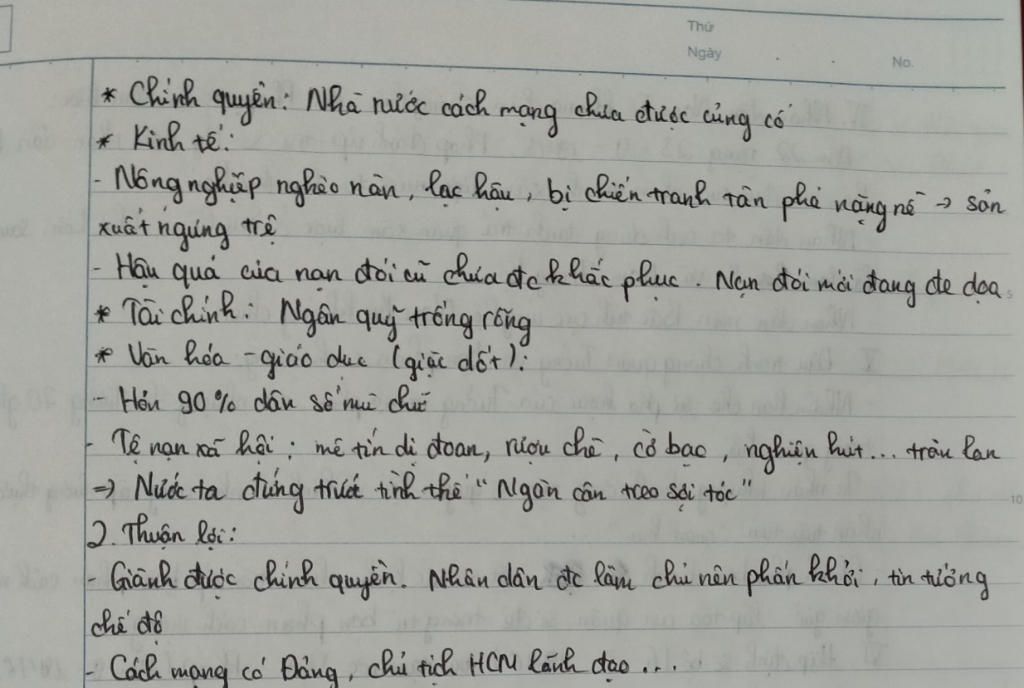 Thứ
Ngày
No.
* Chính quyền: Nhà nước cách mạng chưa được củng cố
* Kinh tế:
- Nông nghiệp nghèo nàn, lạc hậu, bị chiến tranh tàn phá nặng nề → sản
xuất ngừng trệ
- Hậu quả của nạn đói cũ chưa đc khắc phục. Nạn đói mới đang đe dọa
* Tài chính: Ngân quỹ trống rỗng
* Văn hóa - giáo dục (giặc dốt):
- Hơn 90% dân số mù chữ
- Tệ nạn xã hội: mê tín dị đoan, rượu chè, cờ bạc, nghiện hút... tràn lan
⇒ Nước ta đứng trước tình thế "Ngàn cân treo sợi tóc"
2. Thuận lợi:
- Giành được chính quyền. Nhân dân đc làm chủ nên phấn khởi, tin tưởng
chế độ
- Cách mạng có Đảng, chủ tịch HCM lãnh đạo...